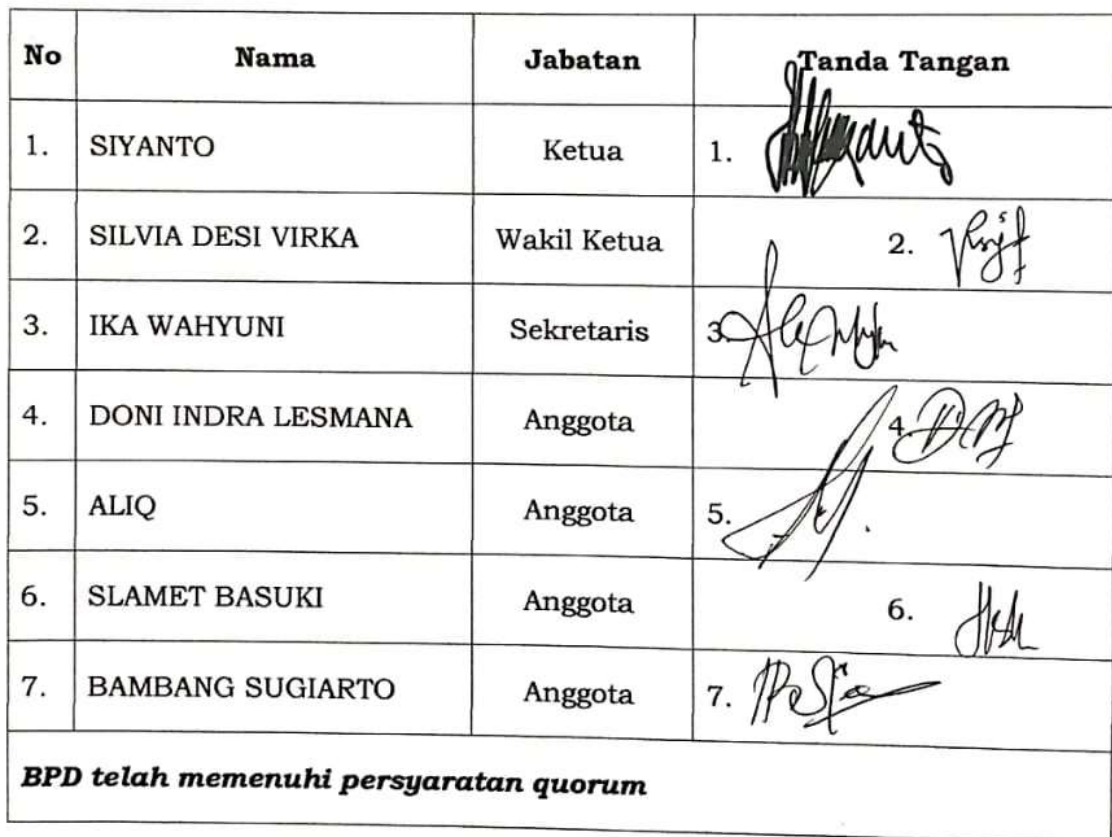 No Nama Jabatan Tanda Tangan
1. SIYANTO Ketua 1.
2. SILVIA DESI VIRKA Wakil Ketua 2.
3. IKA WAHYUNI Sekretaris 3.
4. DONI INDRA LESMANA Anggota 4.
5. ALIQ Anggota 5.
6. SLAMET BASUKI Anggota 6.
7. BAMBANG SUGIARTO Anggota 7.
BPD telah memenuhi persyaratan quorum